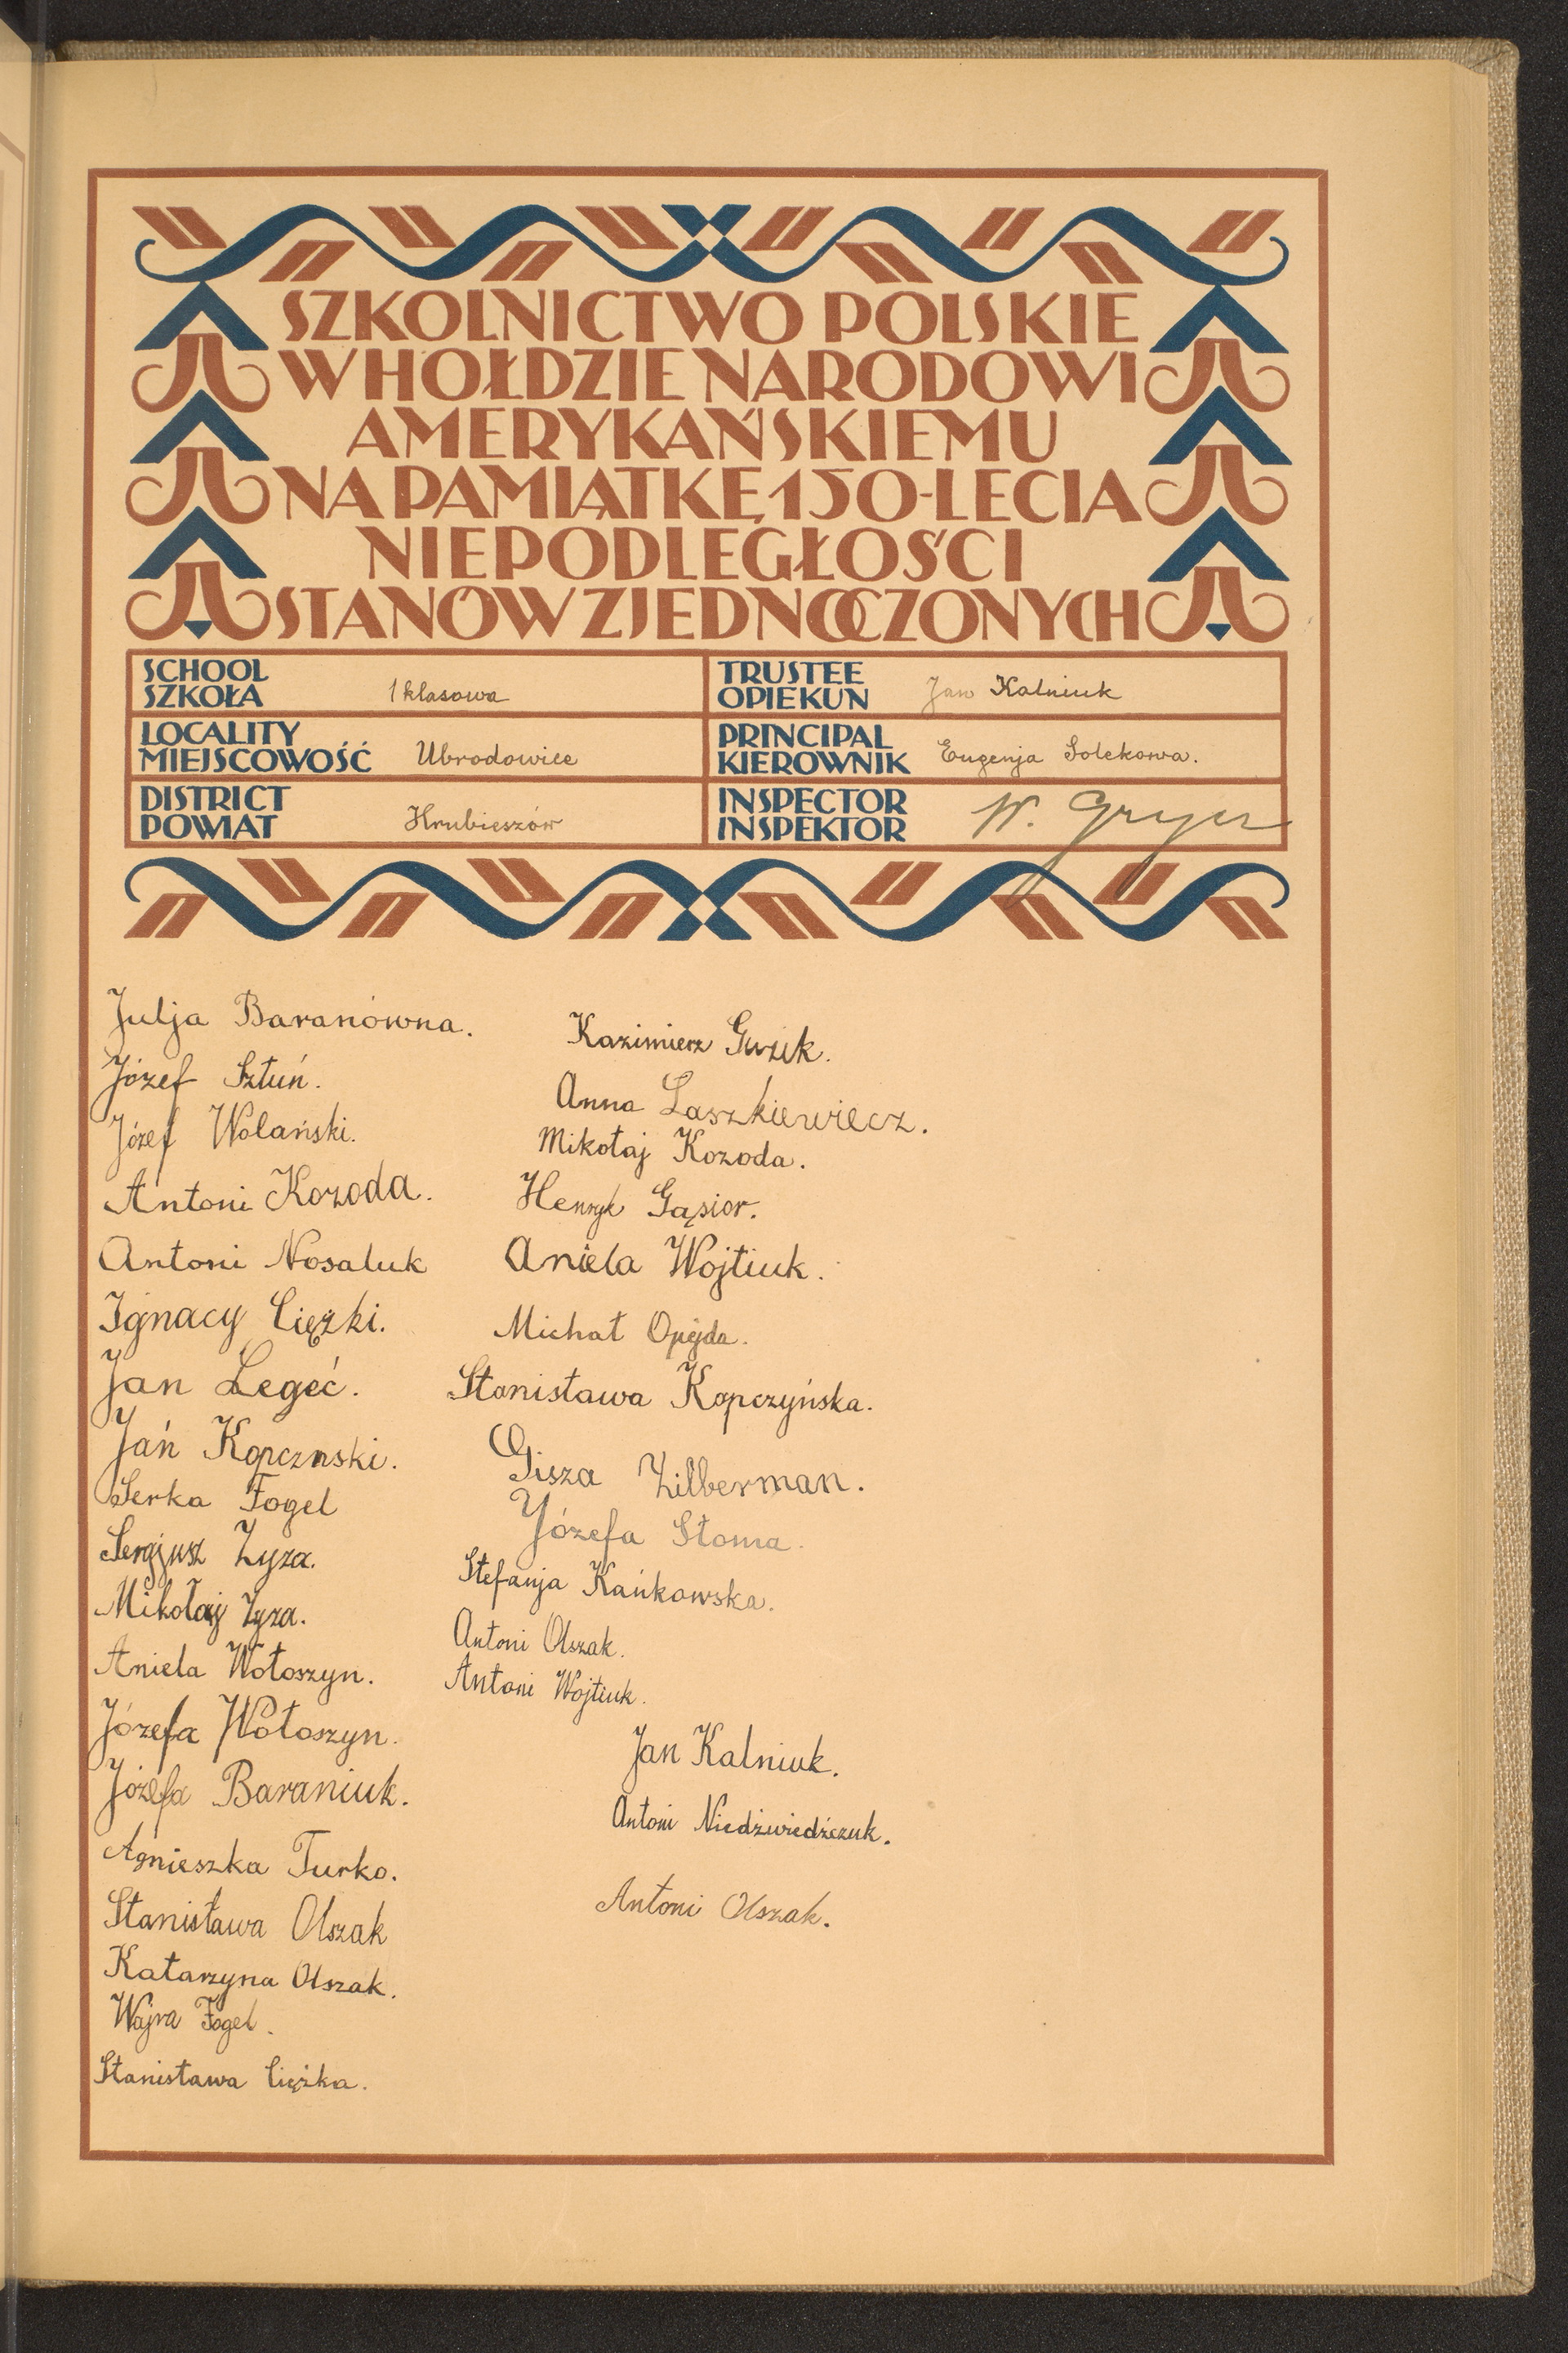 SZKOLNICTWO POLSKIE
W HOŁDZIE NARODOWI
AMERYKAŃSKIEMU
NA PAMIĄTKĘ 150-LECIA
NIEPODLEGŁOŚCI
STANÓW ZJEDNOCZONYCH
SCHOOL
SZKOŁA 1 klasowa
TRUSTEE
OPIEKUN Jan Kalniuk
LOCALITY
MIEJSCOWOŚĆ Ubrodowice
PRINCIPAL
KIEROWNIK Eugenja Solekowa.
DISTRICT
POWIAT Hrubieszów
INSPECTOR
INSPEKTOR W. Gryer
Julja Baranówna.
Józef Sztuń.
Józef Wolański.
Antoni Kozoda.
Antoni Nosaluk
Ignacy Ciężki.
Jan Legeć.
Jań Kopcznski.
Serka Fogel
Sergjusz Zyza.
Mikołaj Zyza.
Aniela Wołoszyn.
Józefa Wołoszyn.
Józefa Baraniuk.
Agnieszka Turko.
Stanisława Olszak
Katarzyna Olszak.
Wajra Fogel.
Stanisława Ciężka.
Kazimierz Guzik.
Anna Laszkiewiecz.
Mikołaj Kozoda.
Henryk Gąsior.
Aniela Wojtiuk.
Michał Opejda.
Stanisława Kopczyńska.
Gisza Zilberman.
Józefa Słoma.
Stefanja Kańkowska.
Antoni Olszak.
Antoni Wojtiuk.
Jan Kalniuk.
Antoni Niedźwiedźczuk.
Antoni Olszak.